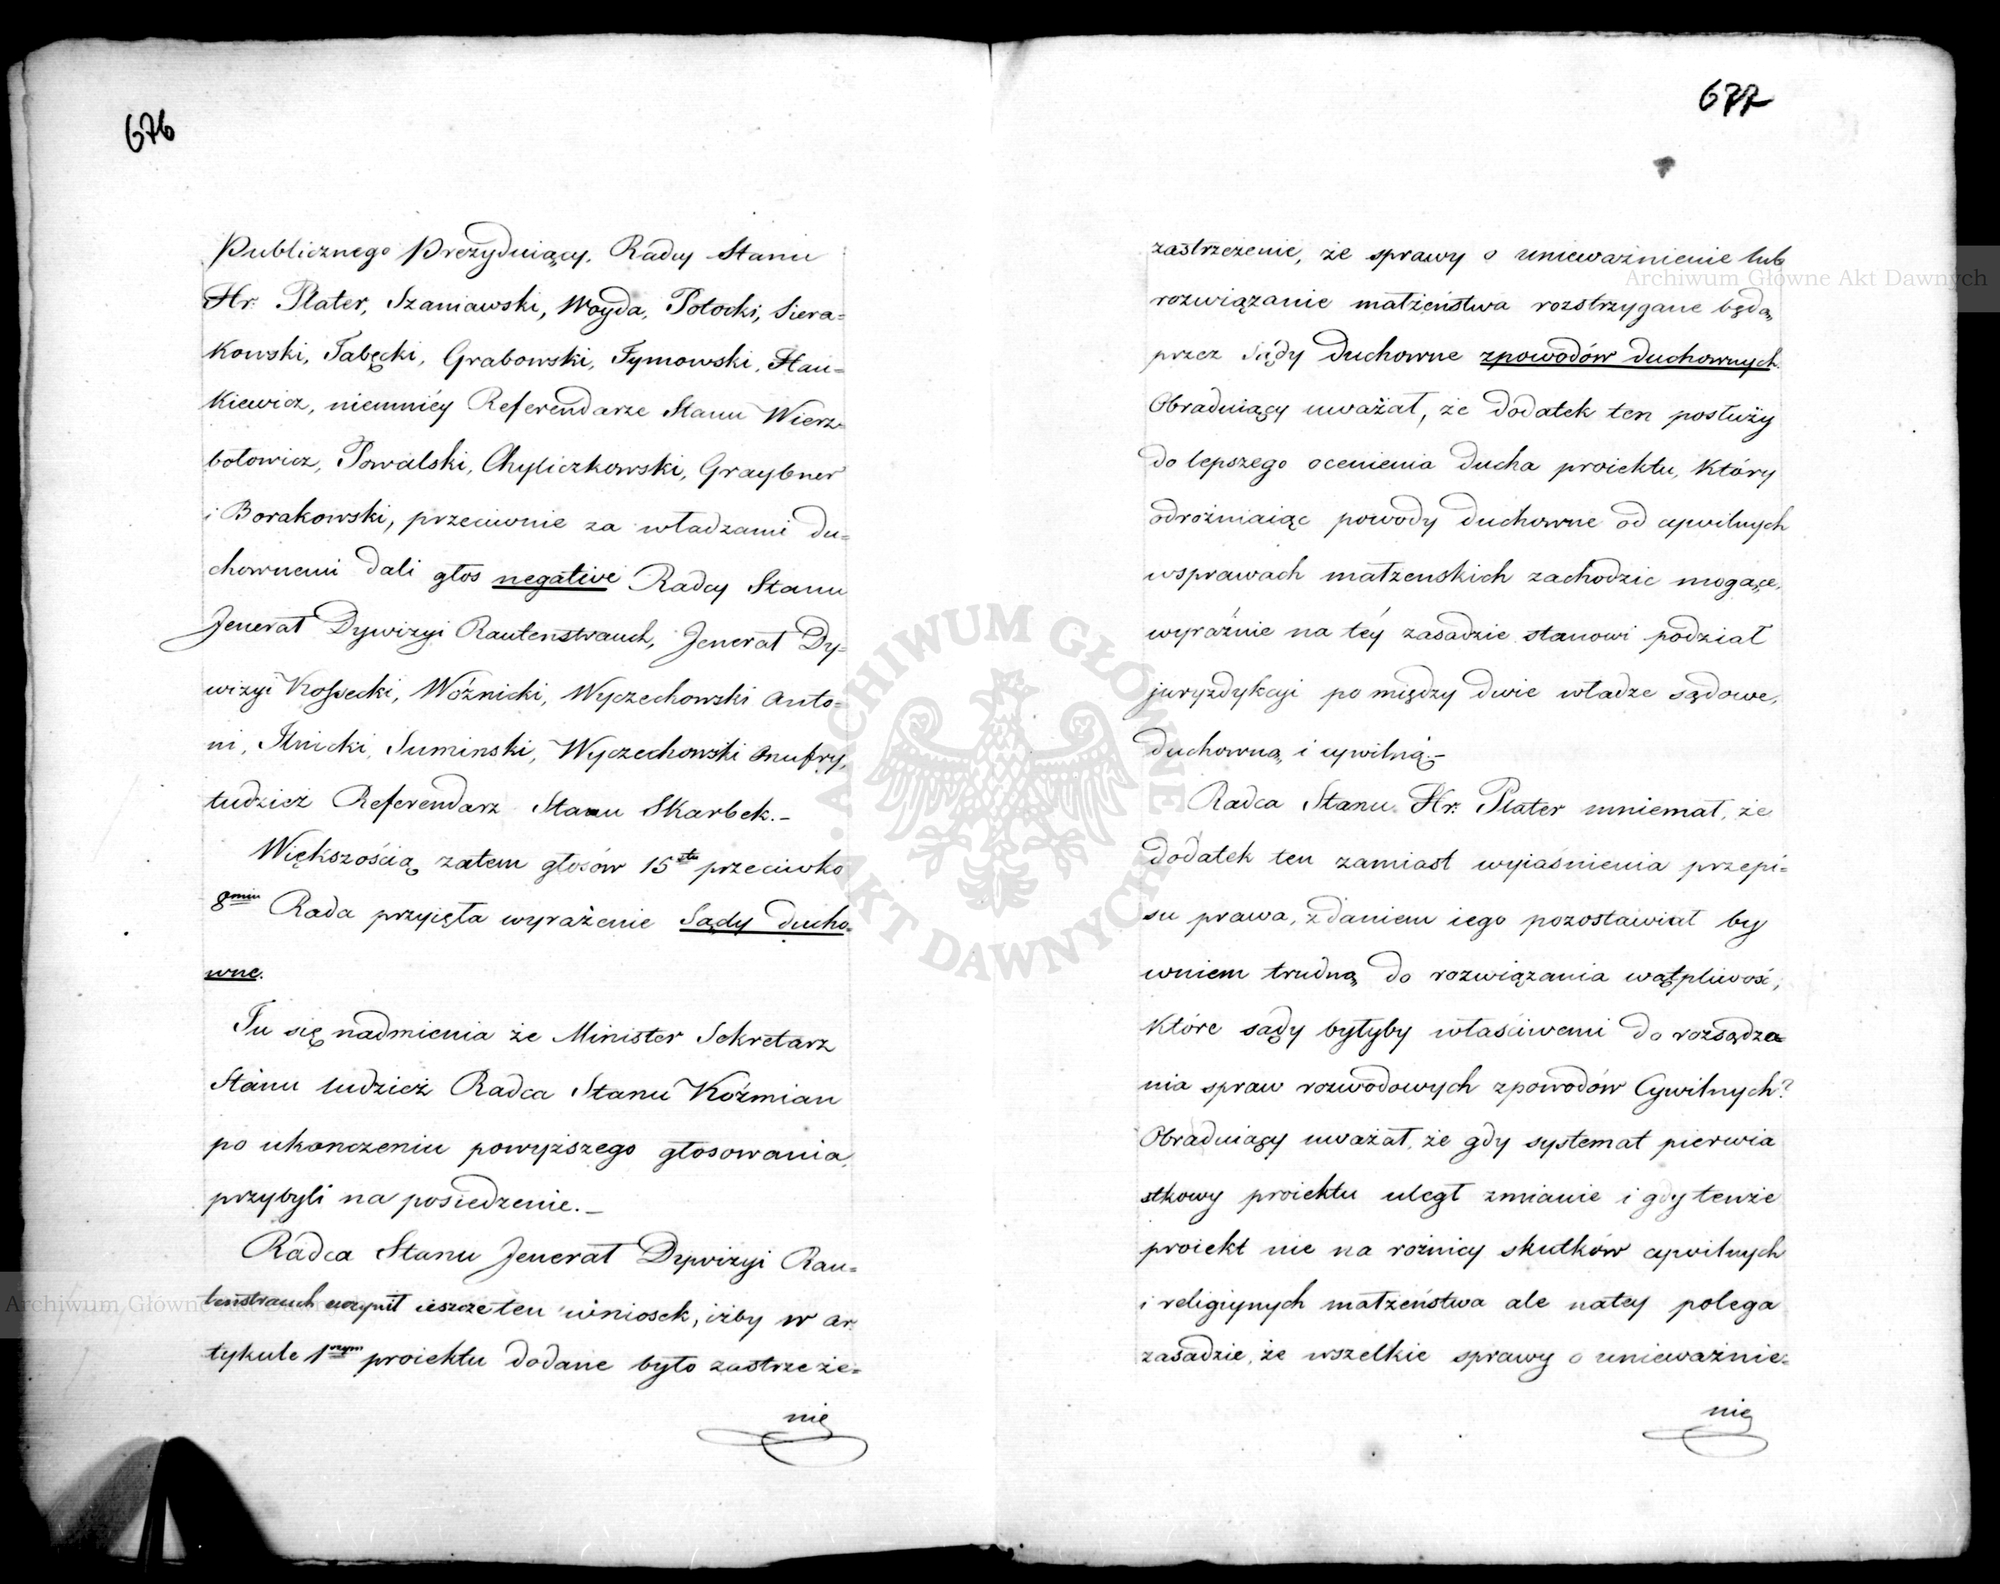 676
Publicznego Prezyduiący, Radcy Stanu
Hr. Plater, Szaniawski, Woyda, Potocki, Siera=
kowski, Tabęcki, Grabowski, Tymowski, Hau=
kiewicz, niemniéy Referendarze Stanu Wierz=
bołowicz, Powalski, Chyliczkowski, Graybner
i Borakowski, przeciwnie za władzami du=
chownemi dali głos negative Radcy Stanu
Jenerał Dywizyi Rautenstrauch, Jenerał Dy=
wizyi Kossecki, Woźnicki, Wyczechowski Anto=
ni, Ilnicki, Suminski, Wyczechowski Onufry,
tudzież Referendarz Stanu Skarbek.–
Większością zatem głosów 15stu przeciwko
8miu Rada przyięła wyrażenie Sądy ducho=
wne.
Tu się nadmienia że Minister Sekretarz
Stanu tudzież Radca Stanu Koźmian
po ukonczeniu powyższego głosowania,
przybyli na posiedzenie.–
Radca Stanu Jenerał Dywizyi Rau=
tenstrauch uczynił ieszcze ten wniosek, iżby w ar=
tykule 1wszym proiektu dodane było zastrzeże=
nie
677
zastrzeżenie, że sprawy o unieważnienie lub
rozwiązanie małżeństwa rozstrzygane będą,
przez Sądy duchowne zpowodów duchownych.
Obraduiący uważał, że dodatek ten posłuży
do lepszego ocenienia ducha proiektu, który
odrożniaiąc powody duchowne od cywilnych
wsprawach małzenskich zachodzic mogące,
wyraźnie na téy zasadzie stanowi podział
juryzdykcyi pomiędzy dwie władze sądowe,
duchowną i cywilną.–
Radca Stanu Hr. Plater mniemał, że
dodatek ten zamiast wyiaśnienia przepi=
su prawa, zdaniem iego pozostawiał by
wniem trudną do rozwiązania wątpliwość,
które sądy byłyby właściwemi do rozsądza=
nia spraw rozwodowych zpowodów Cywilnych?
Obraduiący uważał, że gdy systemat pierwia
stkowy proiektu uległ zmianie i gdy tenże
proiekt nie na rożnicy skutków cywilnych
i religiynych małżeństwa ale natey polega
zasadzie, że wszelkie sprawy o unieważnie=
nie
Archiwum Główne Akt Dawnych
Archiwum Główne Akt Dawnych
ARCHIWUM GŁÓWNE AKT DAWNYCH